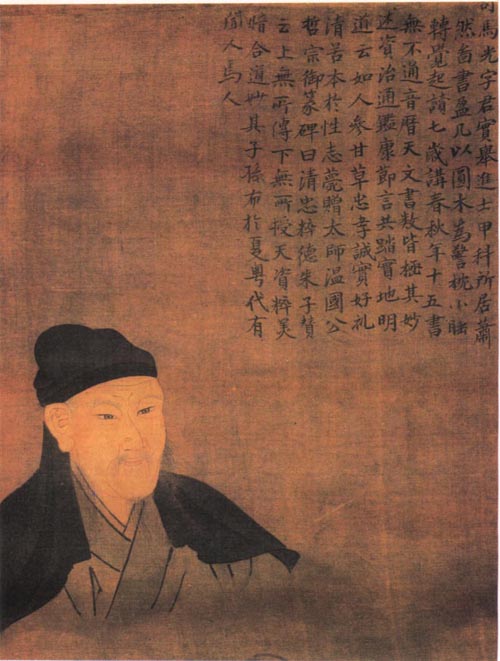 司馬光字君實舉進士甲科所居蕭
然啚書盈几以圓木為警枕小睡
轉覺起讀七歲講春秋年十五書
無不通音曆天文書數皆極其妙
述資治通鑑康節言其踏實地明
道云如人參甘草忠孝誠實好礼
清苦本於性志薨贈太師溫國公
哲宗御篆碑曰清忠粹德朱子贊
云上無所傳下無所授天資粹美
暗合道妙其子孫布於夏粵代有
人馬人